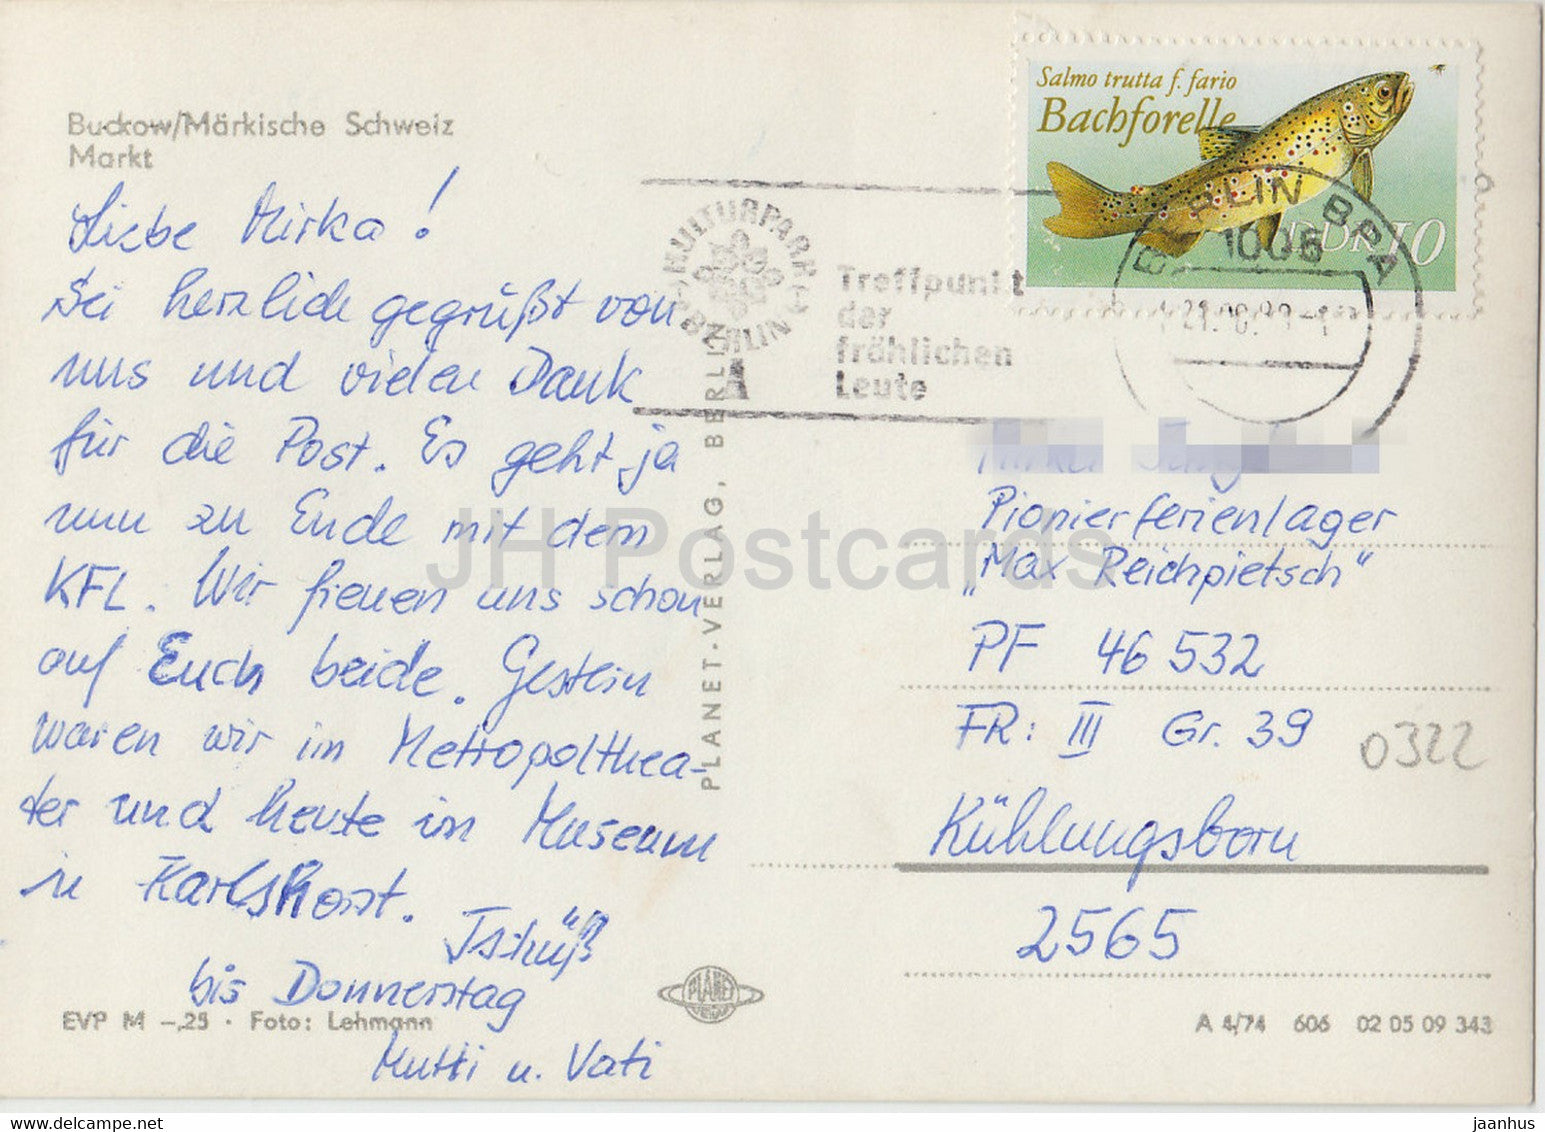 Buckow/Märkische Schweiz
Markt
Liebe Mirka!
Sei herzlich gegrüßt von
uns und vielen Dank
für die Post. Es geht ja
nun zu Ende mit dem
KFL. Wir freuen uns schon
auf Euch beide. Gestern
waren wir im Metropolthea-
ter und heute im Museum
in Karlshorst. Tschüß
bis Donnerstag
Mutti u. Vati
EVP M -,25 · Foto: Lehmann
PLANET-VERLAG, BERLIN
PLANET
KULTURPARK
BERLIN
Treffpunkt
der
fröhlichen
Leute
Salmo trutta f. fario
Bachforelle
DDR 10
BERLIN BPA
1006
Pionierferienlager
„Max Reichpietsch"
PF 46 532
FR: III Gr. 39
0322
Kühlungsborn
2565
A 4/74 606 02 05 09 343
JH Postcards
jaanhus @ delcampe.net